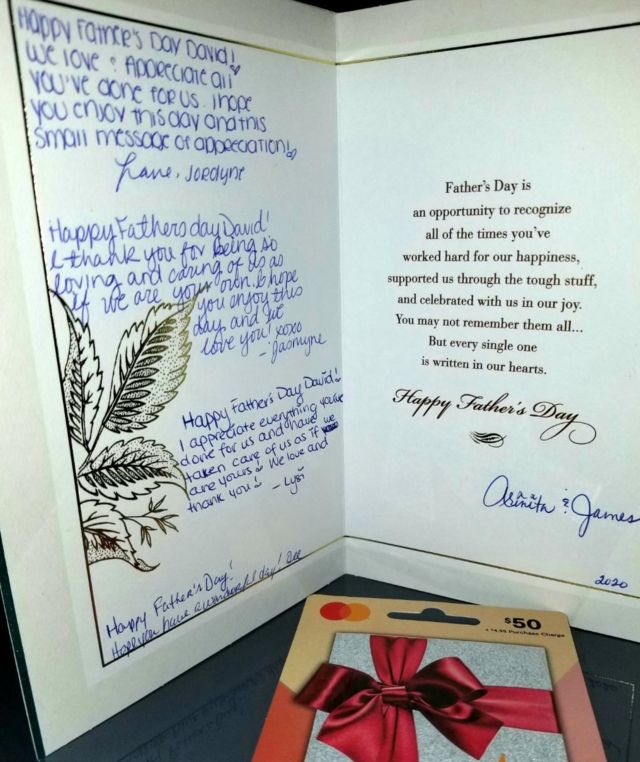 Happy Father's Day David!
We love & Appreciate all
you've done for us. I hope
you enjoy this day and this
small message of appreciation!
Love, Jordyne
Happy Fathers day David!
I thank you for being so
loving and caring of us as
if we are your own. I hope
you enjoy this
day and we
love you! xoxo
- Jasmyne
Happy Father's Day David!
I appreciate everything you've
done for us and have
taken care of us as if we
are yours. We love and
thank you!
- Lysi
Happy Father's Day!
Hope you have a wonderful day! Dee
Father's Day is
an opportunity to recognize
all of the times you've
worked hard for our happiness,
supported us through the tough stuff,
and celebrated with us in our joy.
You may not remember them all...
But every single one
is written in our hearts.
Happy Father's Day
& James
2020
$50
+ $4.95 Purchase Charge